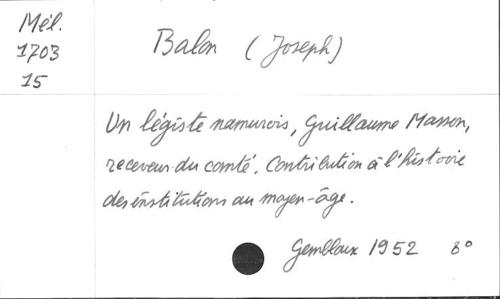 Mél.
1703
15
Balon (Joseph)
Un légiste namurois, Guillaume Masson,
receveur du comté. Contribution à l'histoire
des institutions au moyen-âge.
Gembloux 1952 8°